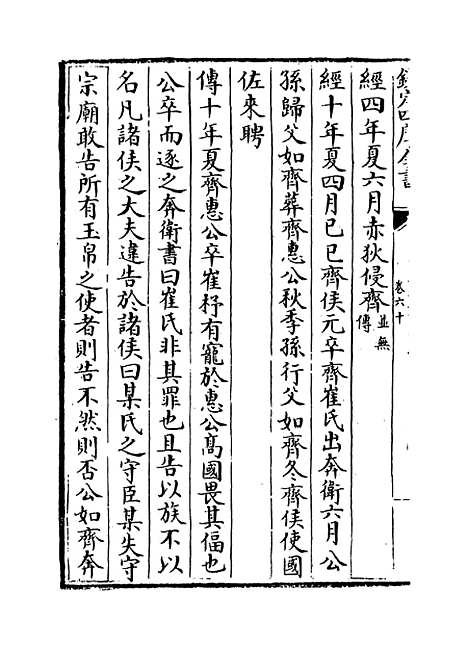 欽定四庫全書
卷六十
經四年夏六月赤狄侵齊並無傳
經十年夏四月己巳齊侯元卒齊崔氏出奔衛六月公
孫歸父如齊葬齊惠公秋季孫行父如齊冬齊侯使國
佐來聘
傳十年夏齊惠公卒崔杼有寵於惠公髙國畏其偪也
公卒而逐之奔衛書曰崔氏非其罪也且告以族不以
名凡諸侯之大夫違告於諸侯曰某氏之守臣某失守
宗廟敢告所有玉帛之使者則告不然則否公如齊奔